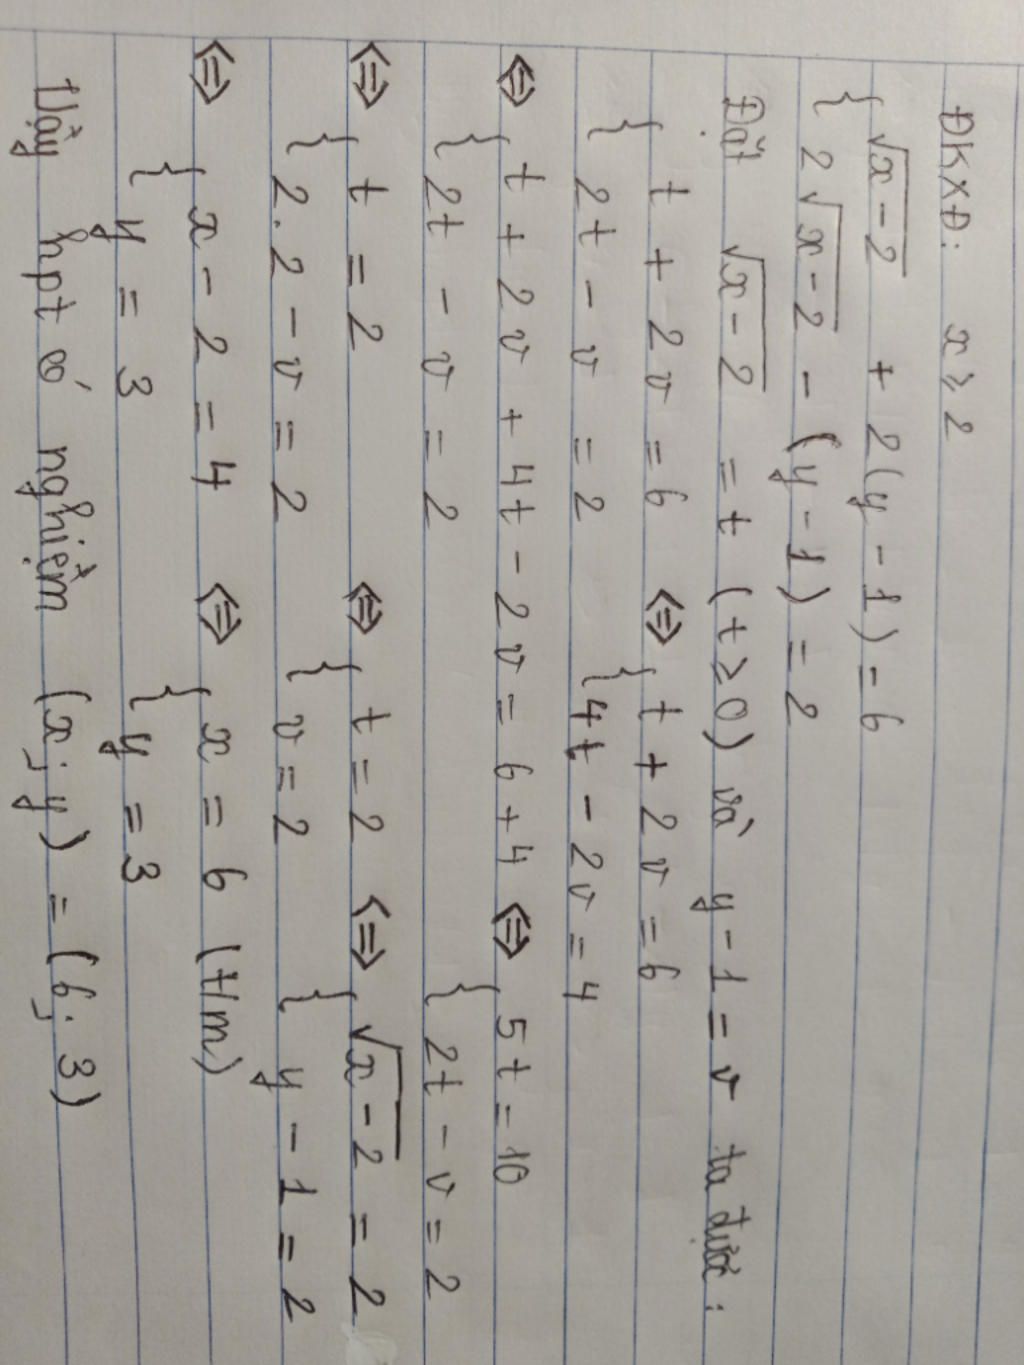 ĐKXĐ: x ≥ 2
{ √x-2 + 2(y - 1) = 6
{ 2√x-2 - (y - 1) = 2
Đặt √x-2 = t (t ≥ 0) và y - 1 = v ta được:
{ t + 2v = 6 <=> { t + 2v = 6
{ 2t - v = 2 { 4t - 2v = 4
<=> { t + 2v + 4t - 2v = 6 + 4 <=> { 5t = 10
{ 2t - v = 2 { 2t - v = 2
<=> { t = 2 <=> { t = 2 <=> { √x-2 = 2
{ 2.2 - v = 2 { v = 2 { y - 1 = 2
<=> { x - 2 = 4 <=> { x = 6 (t/m)
{ y = 3 { y = 3
Vậy hpt có nghiệm (x; y) = (6; 3)